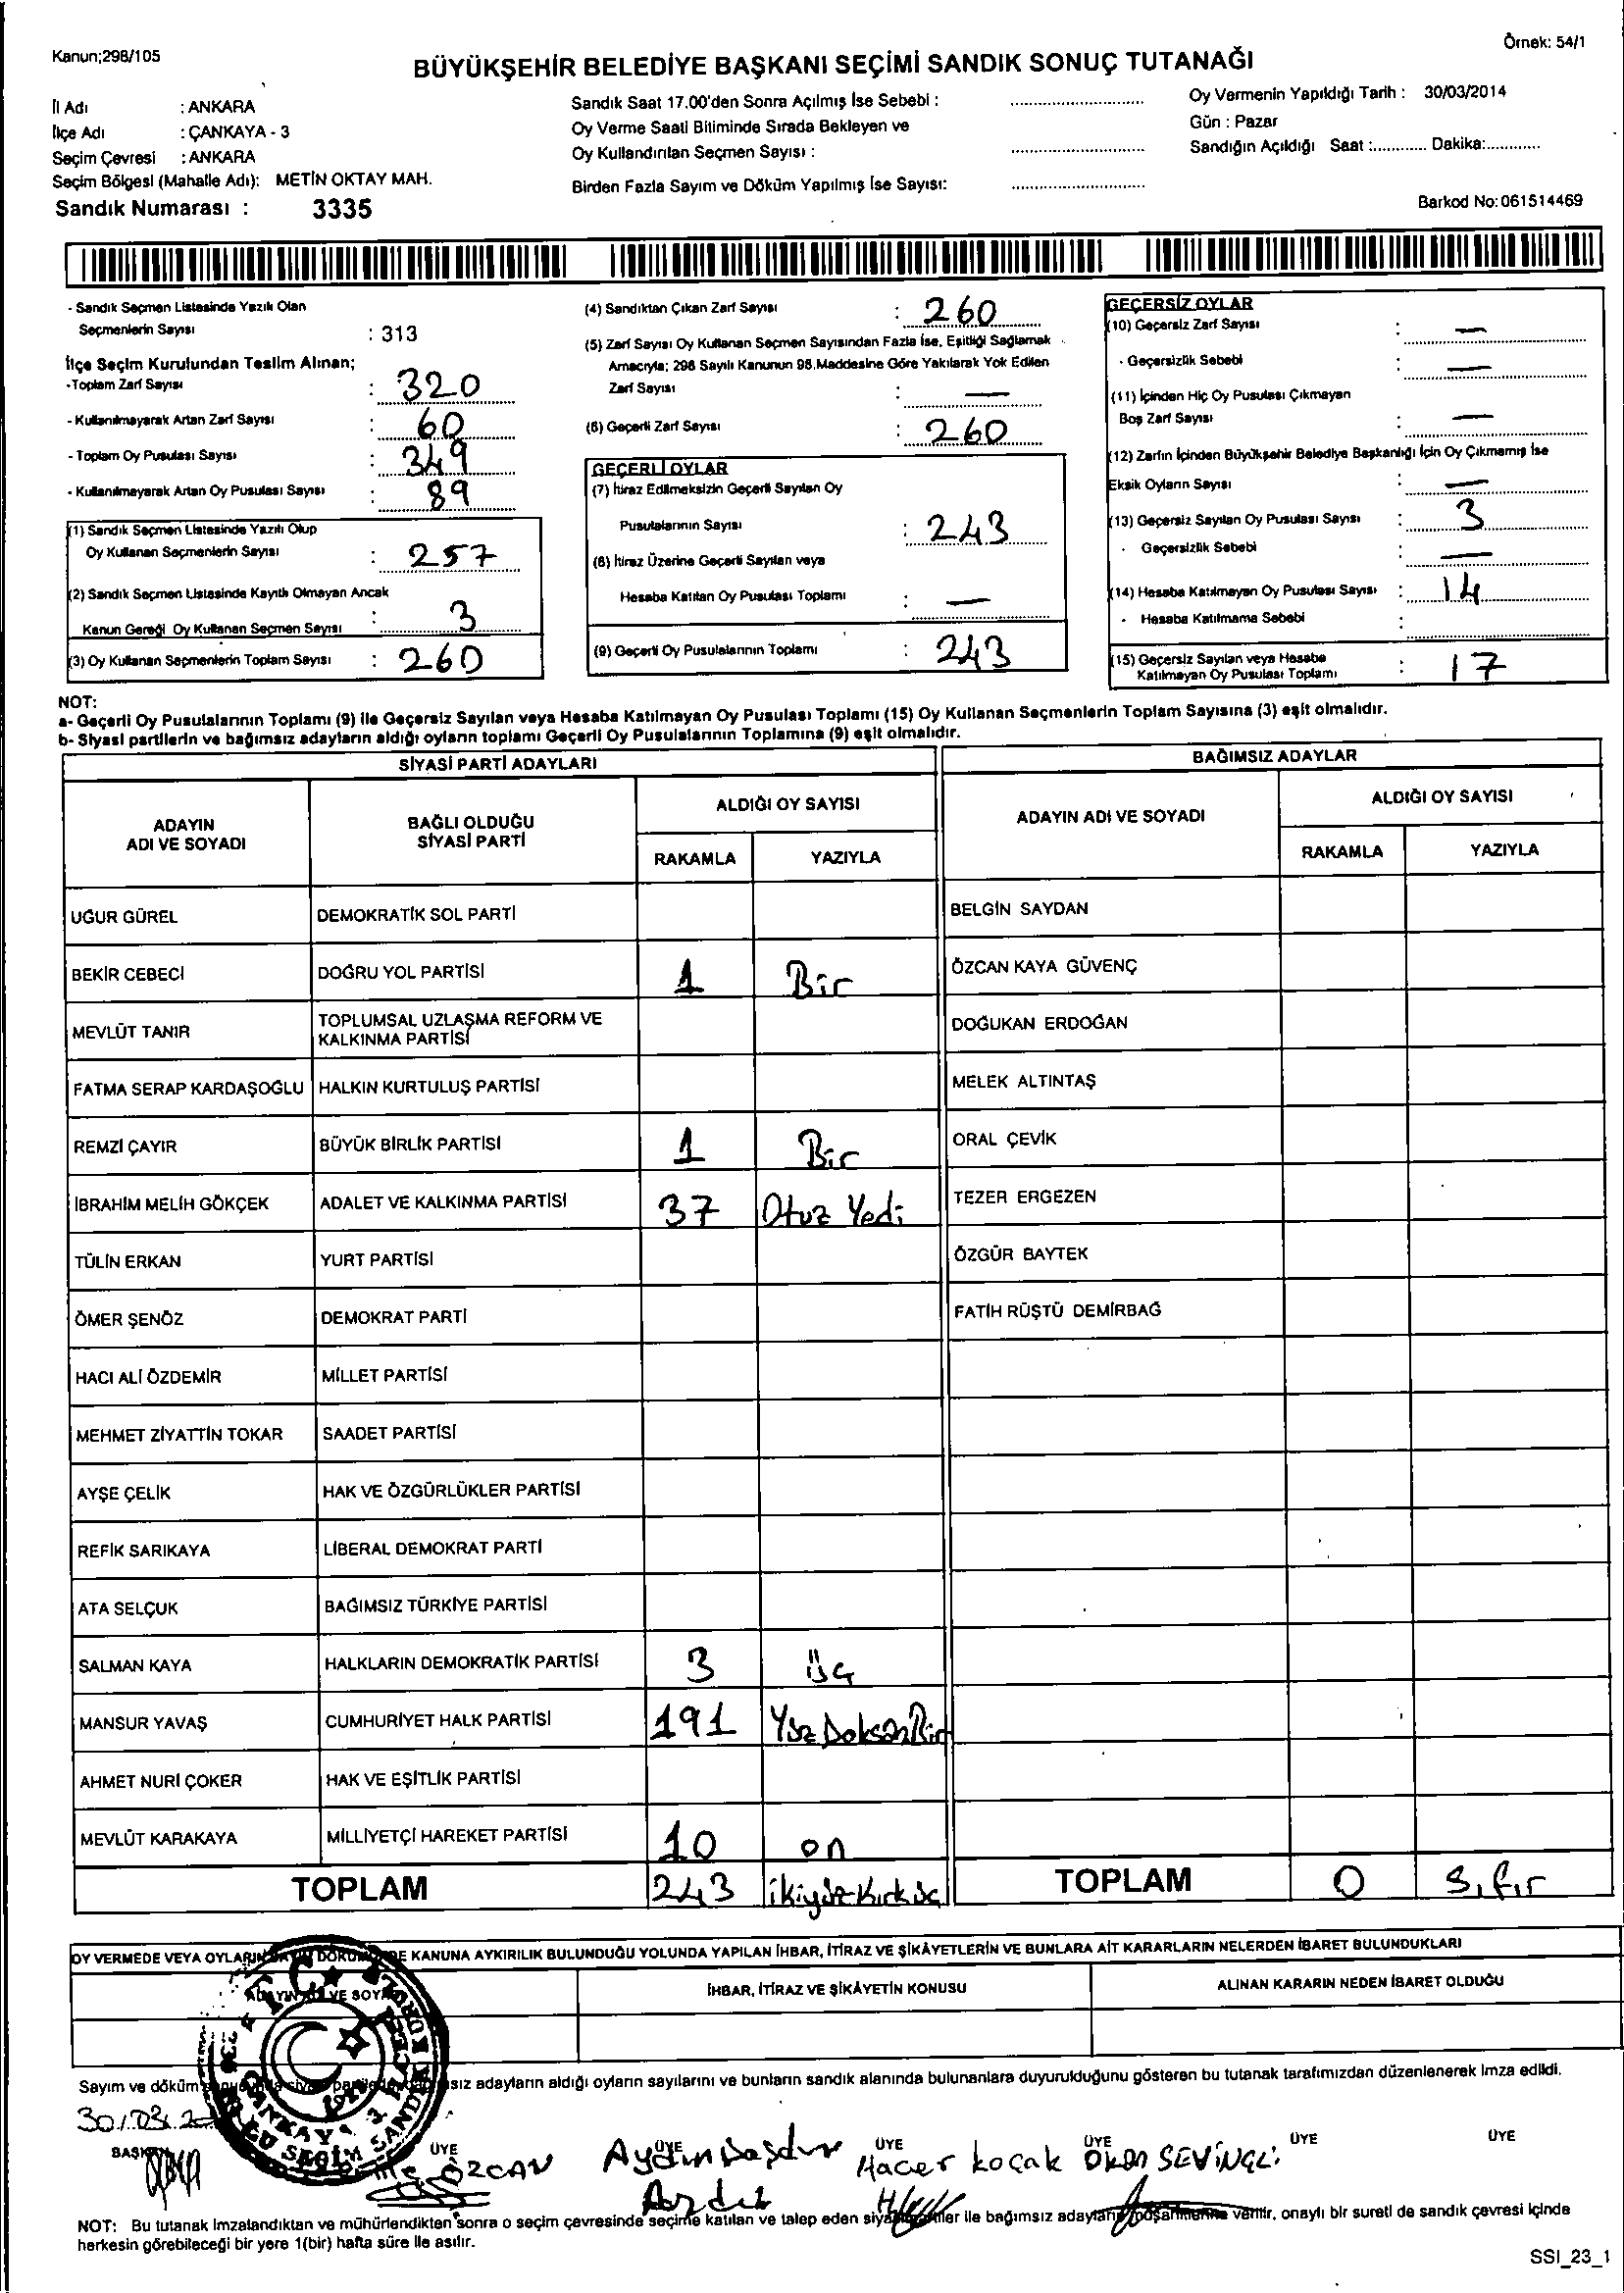 Kanun;298/105
Örnek: 54/1
BÜYÜKŞEHİR BELEDİYE BAŞKANI SEÇİMİ SANDIK SONUÇ TUTANAĞI
İl Adı : ANKARA
İlçe Adı : ÇANKAYA - 3
Seçim Çevresi : ANKARA
Seçim Bölgesi (Mahalle Adı): METİN OKTAY MAH.
Sandık Numarası : 3335
Sandık Saat 17.00'den Sonra Açılmış İse Sebebi :
Oy Verme Saati Bitiminde Sırada Bekleyen ve
Oy Kullandırılan Seçmen Sayısı :
Birden Fazla Sayım ve Döküm Yapılmış İse Sayısı:
Oy Vermenin Yapıldığı Tarih : 30/03/2014
Gün : Pazar
Sandığın Açıldığı Saat :............ Dakika:............
Barkod No:061514469
- Sandık Seçmen Listesinde Yazılı Olan
Seçmenlerin Sayısı : 313
İlçe Seçim Kurulundan Teslim Alınan;
-Toplam Zarf Sayısı : 320
- Kullanılmayarak Artan Zarf Sayısı : 60
- Toplam Oy Pusulası Sayısı : 349
- Kullanılmayarak Artan Oy Pusulası Sayısı : 89
(1) Sandık Seçmen Listesinde Yazılı Olup
Oy Kullanan Seçmenlerin Sayısı : 257
(2) Sandık Seçmen Listesinde Kayıtlı Olmayan Ancak
Kanun Gereği Oy Kullanan Seçmen Sayısı : 3
(3) Oy Kullanan Seçmenlerin Toplam Sayısı : 260
(4) Sandıktan Çıkan Zarf Sayısı : 260
(5) Zarf Sayısı Oy Kullanan Seçmen Sayısından Fazla İse, Eşitliği Sağlamak
Amacıyla; 298 Sayılı Kanunun 98.Maddesine Göre Yakılarak Yok Edilen
Zarf Sayısı : —
(6) Geçerli Zarf Sayısı : 260
GEÇERLİ OYLAR
(7) İtiraz Edilmeksizin Geçerli Sayılan Oy
Pusulalarının Sayısı : 243
(8) İtiraz Üzerine Geçerli Sayılan veya
Hesaba Katılan Oy Pusulası Toplamı : —
(9) Geçerli Oy Pusulalarının Toplamı : 243
GEÇERSİZ OYLAR
(10) Geçersiz Zarf Sayısı : —
- Geçersizlik Sebebi : —
(11) İçinden Hiç Oy Pusulası Çıkmayan
Boş Zarf Sayısı : —
(12) Zarfın İçinden Büyükşehir Belediye Başkanlığı İçin Oy Çıkmamış İse
Eksik Oyların Sayısı : —
(13) Geçersiz Sayılan Oy Pusulası Sayısı : 3
- Geçersizlik Sebebi : —
(14) Hesaba Katılmayan Oy Pusulası Sayısı : 14
- Hesaba Katılmama Sebebi :
(15) Geçersiz Sayılan veya Hesaba
Katılmayan Oy Pusulası Toplamı : 17
NOT:
a- Geçerli Oy Pusulalarının Toplamı (9) ile Geçersiz Sayılan veya Hesaba Katılmayan Oy Pusulası Toplamı (15) Oy Kullanan Seçmenlerin Toplam Sayısına (3) eşit olmalıdır.
b- Siyasi partilerin ve bağımsız adayların aldığı oyların toplamı Geçerli Oy Pusulalarının Toplamına (9) eşit olmalıdır.
SİYASİ PARTİ ADAYLARI
BAĞIMSIZ ADAYLAR
ADAYIN ADI VE SOYADI
BAĞLI OLDUĞU SİYASİ PARTİ
ALDIĞI OY SAYISI
RAKAMLA YAZIYLA
ADAYIN ADI VE SOYADI
ALDIĞI OY SAYISI
RAKAMLA YAZIYLA
UĞUR GÜREL DEMOKRATİK SOL PARTİ
BELGİN SAYDAN
BEKİR CEBECİ DOĞRU YOL PARTİSİ 1 Bir
ÖZCAN KAYA GÜVENÇ
MEVLÜT TANIR TOPLUMSAL UZLAŞMA REFORM VE KALKINMA PARTİSİ
DOĞUKAN ERDOĞAN
FATMA SERAP KARDAŞOĞLU HALKIN KURTULUŞ PARTİSİ
MELEK ALTINTAŞ
REMZİ ÇAYIR BÜYÜK BİRLİK PARTİSİ 1 Bir
ORAL ÇEVİK
İBRAHİM MELİH GÖKÇEK ADALET VE KALKINMA PARTİSİ 37 Otuz Yedi
TEZER ERGEZEN
TÜLİN ERKAN YURT PARTİSİ
ÖZGÜR BAYTEK
ÖMER ŞENÖZ DEMOKRAT PARTİ
FATİH RÜŞTÜ DEMİRBAĞ
HACI ALİ ÖZDEMİR MİLLET PARTİSİ
MEHMET ZİYATTİN TOKAR SAADET PARTİSİ
AYŞE ÇELİK HAK VE ÖZGÜRLÜKLER PARTİSİ
REFİK SARIKAYA LİBERAL DEMOKRAT PARTİ
ATA SELÇUK BAĞIMSIZ TÜRKİYE PARTİSİ
SALMAN KAYA HALKLARIN DEMOKRATİK PARTİSİ 3 üç
MANSUR YAVAŞ CUMHURİYET HALK PARTİSİ 191 Yüz Doksan Bir
AHMET NURİ ÇOKER HAK VE EŞİTLİK PARTİSİ
MEVLÜT KARAKAYA MİLLİYETÇİ HAREKET PARTİSİ 10 on
TOPLAM 243 ikiyüz Kırk üç
TOPLAM 0 Sıfır
OY VERMEDE VEYA OYLARIN KANUNA AYKIRILIK BULUNDUĞU YOLUNDA YAPILAN İHBAR, İTİRAZ VE ŞİKÂYETLERİN VE BUNLARA AİT KARARLARIN NELERDEN İBARET BULUNDUKLARI
ADAYIN ADI VE SOYADI
İHBAR, İTİRAZ VE ŞİKÂYETİN KONUSU
ALINAN KARARIN NEDEN İBARET OLDUĞU
Sayım ve döküm adayların aldığı oyların sayılarını ve bunların sandık alanında bulunanlara duyurulduğunu gösteren bu tutanak tarafımızdan düzenlenerek imza edildi.
30/03/2
BAŞKAN ÜYE ÜYE ÜYE ÜYE ÜYE ÜYE
ÖZCAN Aydın Hacer koçak Okan SEVİNÇLİ
T.C. ÇANKAYA 3. SEÇİM SANDIK KURULU
NOT: Bu tutanak imzalandıktan ve mühürlendikten sonra o seçim çevresinde seçime katılan ve talep eden siyasi partiler ile bağımsız adayların verilir, onaylı bir sureti de sandık çevresi içinde
herkesin görebileceği bir yere 1(bir) hafta süre ile asılır.
SSI_23_1